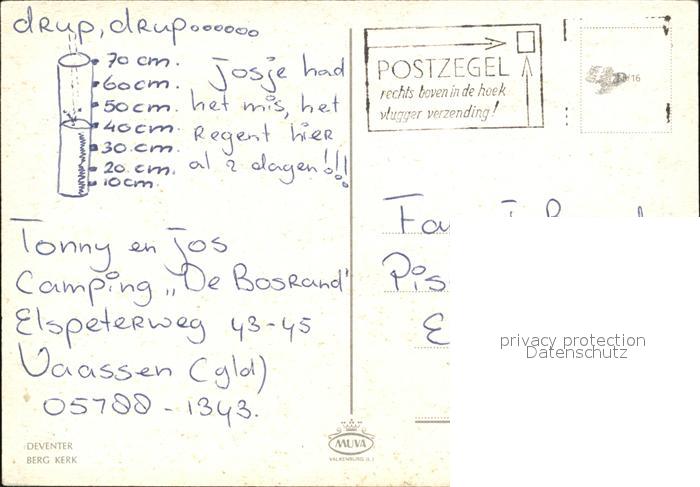 drup, drup.......
70 cm.
60cm.
50cm.
40 cm.
30 cm.
20 cm.
10cm
Josje had
het mis, het
Regent hier
al 2 dagen!!!
Tonny en Jos
Camping „De Bosrand"
Elspeterweg 43-45
Vaassen (gld)
05788 - 1343.
DEVENTER
BERG KERK
POSTZEGEL
rechts boven in de hoek
vlugger verzending!
MUVA
VALKENBURG (L.)
privacy protection
Datenschutz